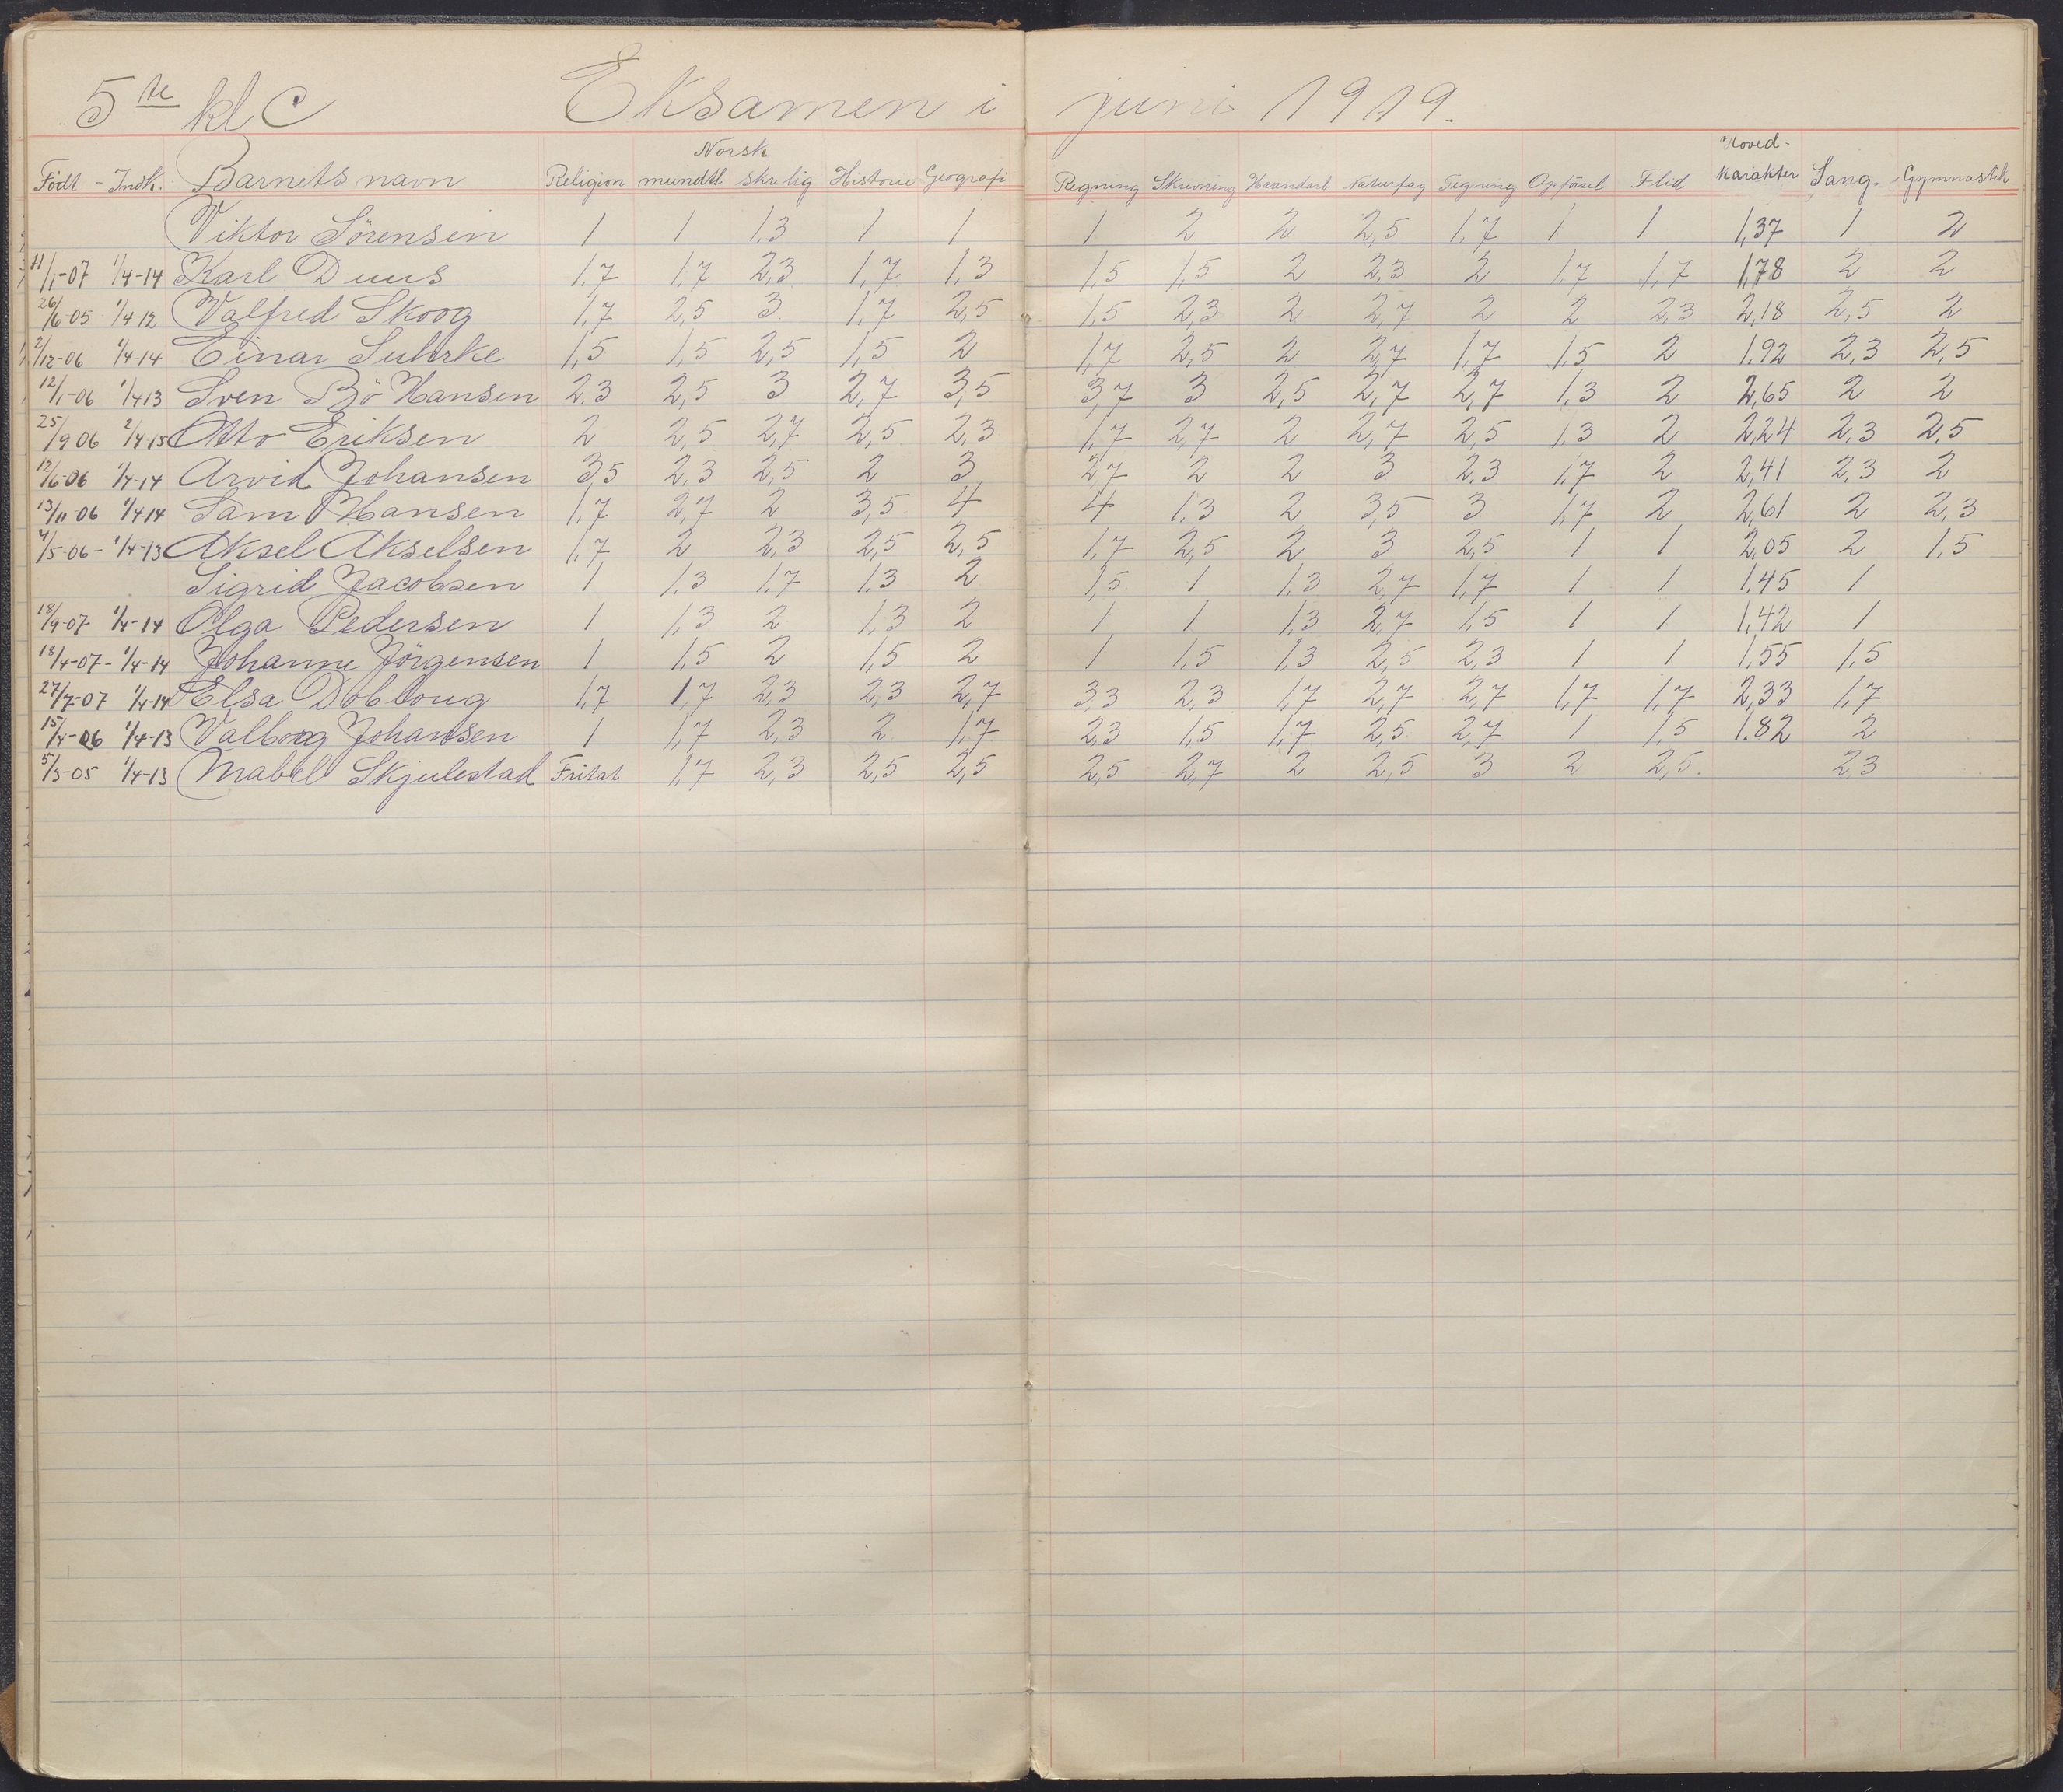 5te kl C Eksamen i juni 1919.
Norsk Hoved-
Født - Indk. Barnets navn Religion mundtl skr.lig Historie Geografi Regning Skrivning Haandarb Naturfag Tegning Opførsel Flid karakter Sang. Gymnastik
Viktor Sörensen 1 1 1,3 1 1 1 2 2 2,5 1,7 1 1 1,37 1 2
11/1-07 1/4-14 Karl Duus 1,7 1,7 2,3 1,7 1,3 1,5 1,5 2 2,3 2 1,7 1,7 1,78 2 2
26/6-05 1/4-12 Valfred Skoog 1,7 2,5 3 1,7 2,5 1,5 2,3 2 2,7 2 2 2,3 2,18 2,5 2
2/12-06 1/4-14 Einar Suhrke 1,5 1,5 2,5 1,5 2 1,7 2,5 2 2,7 1,7 1,5 2 1,92 2,3 2,5
12/1-06 1/4 13 Sven Bö Hansen 2,3 2,5 3 2,7 3,5 3,7 3 2,5 2,7 2,7 1,3 2 2,65 2 2
25/9 06 2/4 15 Otto Eriksen 2 2,5 2,7 2,5 2,3 1,7 2,7 2 2,7 2,5 1,3 2 2,24 2,3 2,5
12/6-06 1/4-14 Arvid Johansen 3,5 2,3 2,5 2 3 2,7 2 2 3 2,3 1,7 2 2,41 2,3 2
13/11-06 1/4 14 Sam Hansen 1,7 2,7 2 3,5 4 4 1,3 2 3,5 3 1,7 2 2,61 2 2,3
4/5-06 - 1/4-13 Aksel Akselsen 1,7 2 2,3 2,5 2,5 1,7 2,5 2 3 2,5 1 1 2,05 2 1,5
Sigrid Jacobsen 1 1,3 1,7 1,3 2 1,5 1 1,3 2,7 1,7 1 1 1,45 1
18/9-07 1/4-14 Olga Pedersen 1 1,3 2 1,3 2 1 1 1,3 2,7 1,5 1 1 1,42 1
18/4-07 - 1/4-14 Johanne Jörgensen 1 1,5 2 1,5 2 1 1,5 1,3 2,5 2,3 1 1 1,55 1,5
27/7-07 1/4-14 Elsa Dobloug 1,7 1,7 2,3 2,3 2,7 3,3 2,3 1,7 2,7 2,7 1,7 1,7 2,33 1,7
15/4-06 1/4-13 Valborg Johansen 1 1,7 2,3 2 1,7 2,3 1,5 1,7 2,5 2,7 1 1,5 1.82 2
5/3-05 1/4-13 Mabel Skjulestad Fritat 1,7 2,3 2,5 2,5 2,5 2,7 2 2,5 3 2 2,5. 2,3